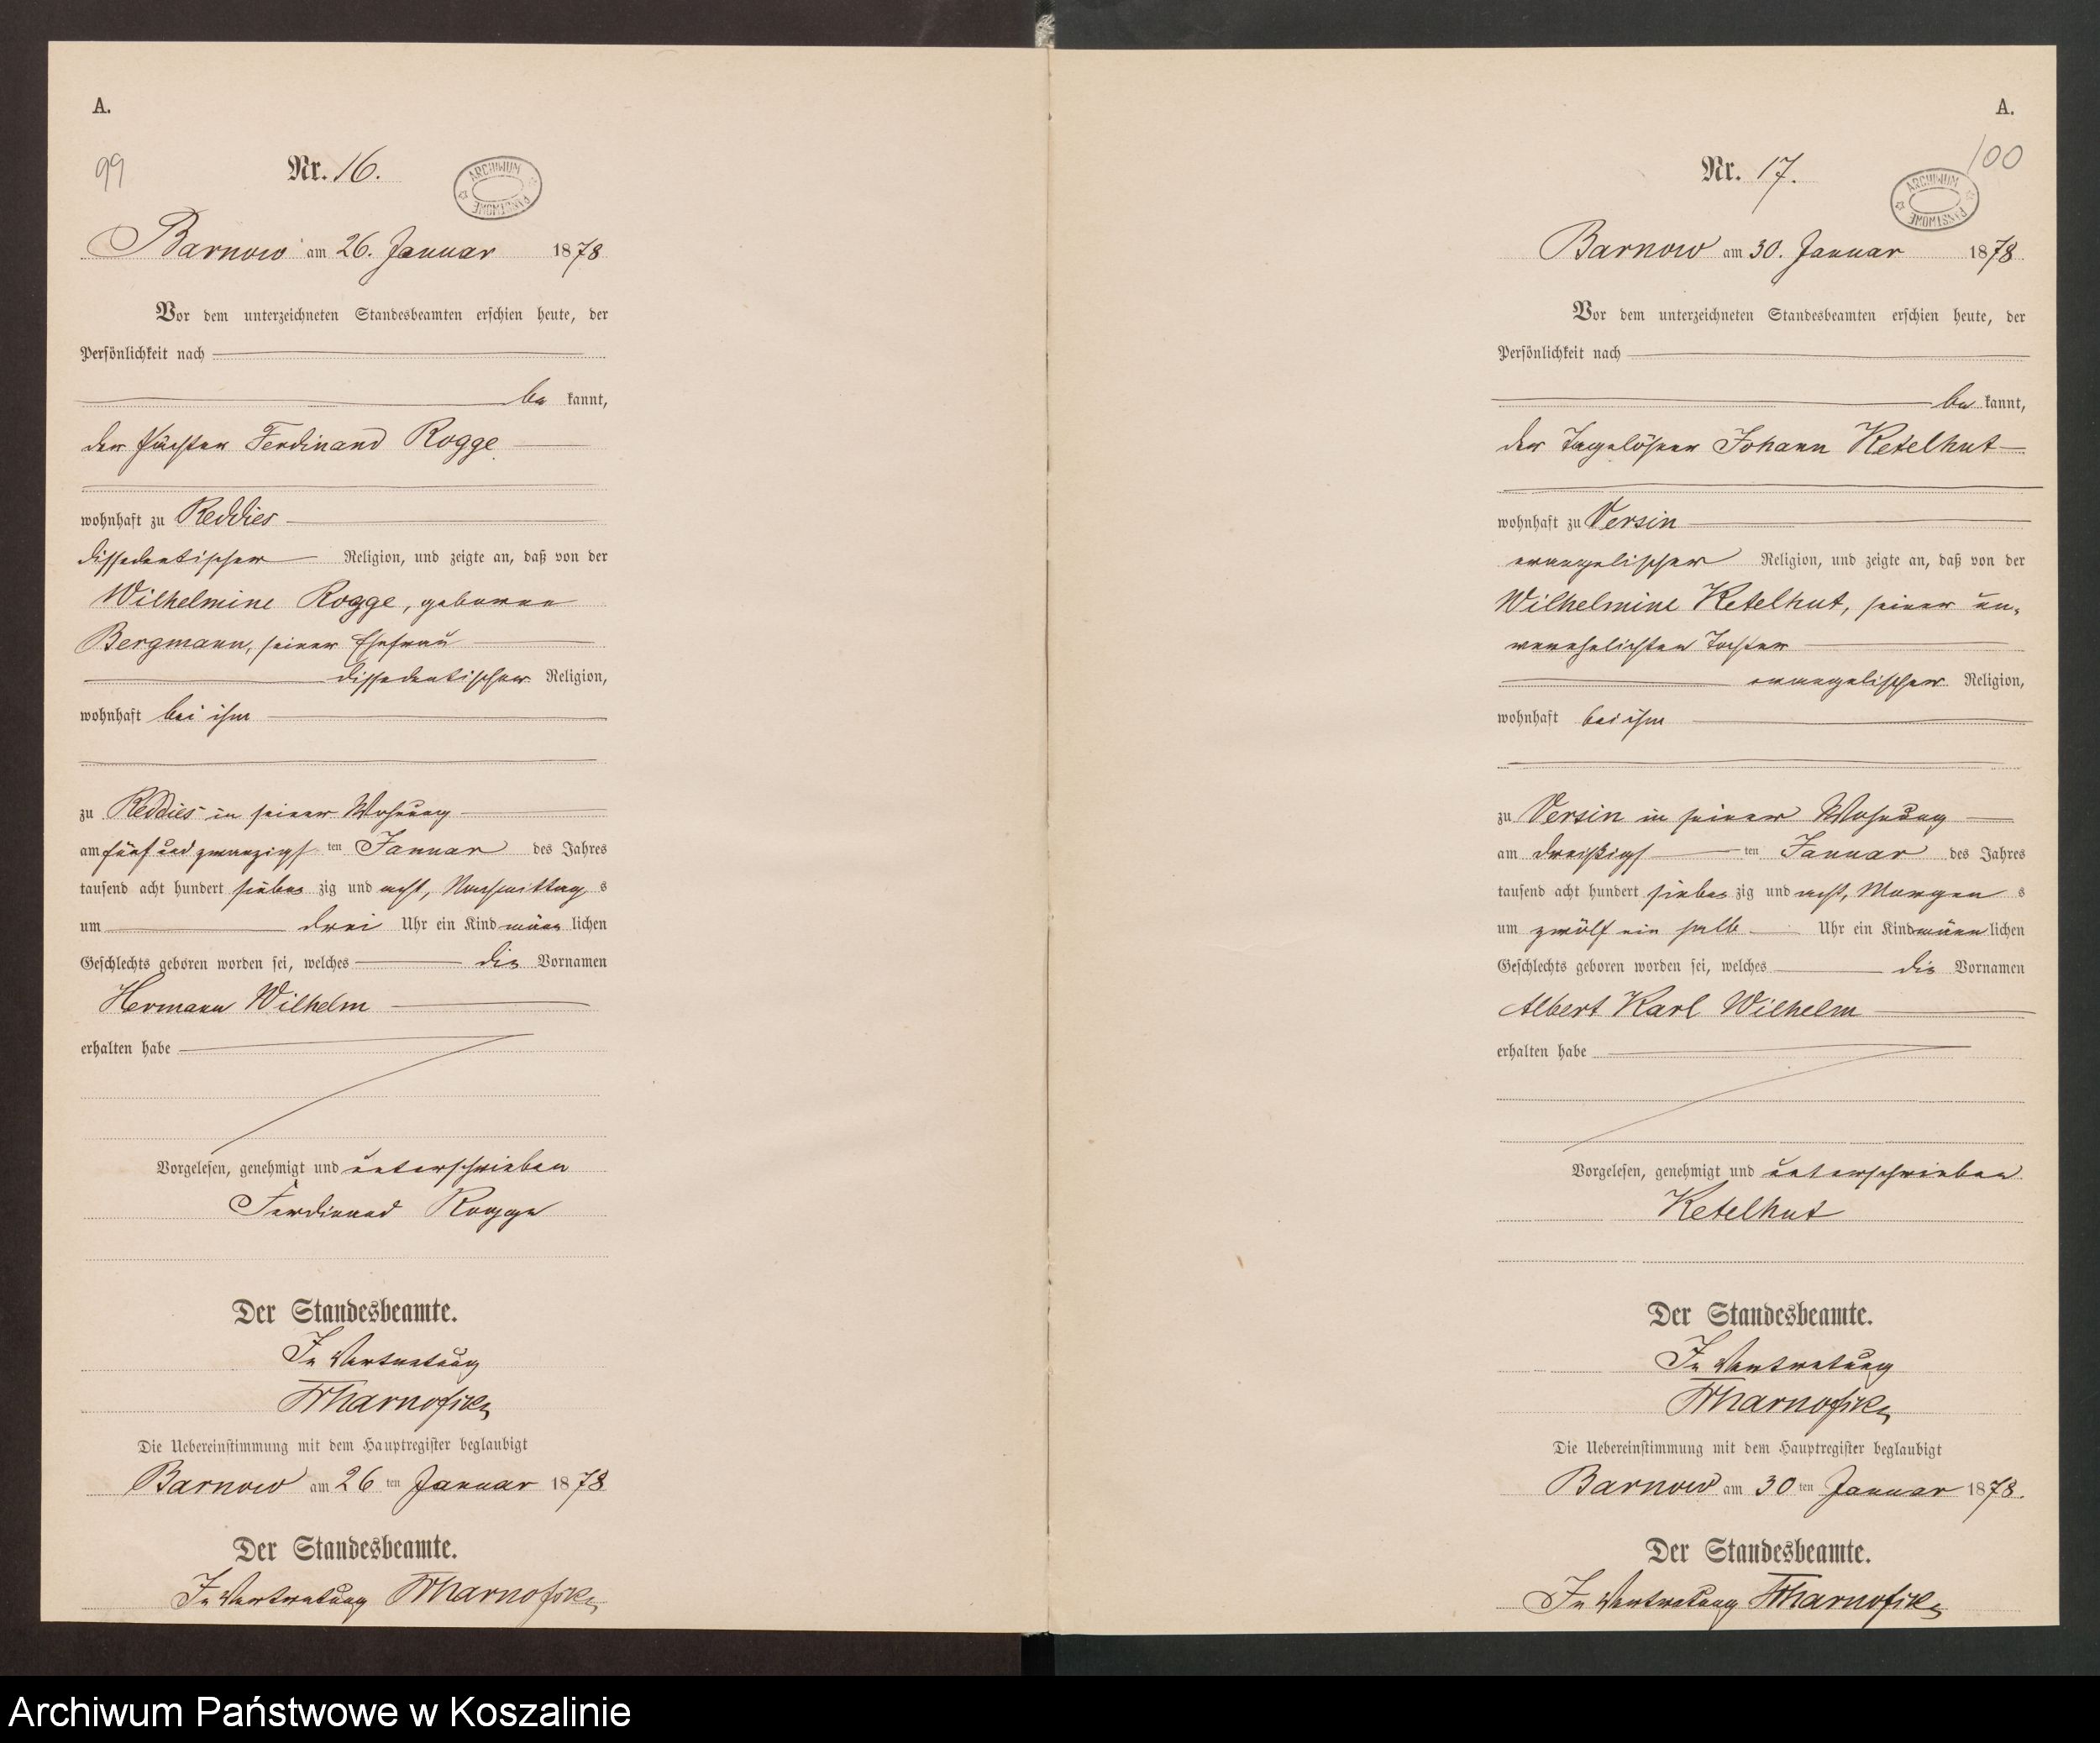 A.
99
Nr. 16.
ARCHIWUM PAŃSTWOWE
Barnow am 26. Januar 1878
Vor dem unterzeichneten Standesbeamten erschien heute, der
Persönlichkeit nach
be kannt,
der Pächter Ferdinand Rogge
wohnhaft zu Reddies
dissedentischer Religion, und zeigte an, daß von der
Wilhelmine Rogge, geborene
Bergmann, seiner Ehefrau
dissedentischer Religion,
wohnhaft bei ihm
zu Reddies in seiner Wohnung
am fünf und zwanzigs ten Januar des Jahres
tausend acht hundert sieben zig und acht, Nachmittag s
um drei Uhr ein Kind männ lichen
Geschlechts geboren worden sei, welches die Vornamen
Hermann Wilhelm
erhalten habe
Vorgelesen, genehmigt und unterschrieben
Ferdinand Rogge
Der Standesbeamte.
In Vertretung
Die Uebereinstimmung mit dem Hauptregister beglaubigt
Barnow am 26 ten Januar 1878
Der Standesbeamte.
In Vertretung
A.
100
Nr. 17.
ARCHIWUM PAŃSTWOWE
Barnow am 30. Januar 1878.
Vor dem unterzeichneten Standesbeamten erschien heute, der
Persönlichkeit nach
be kannt,
der Tagelöhner Johann Ketelhut
wohnhaft zu Versin
evangelischer Religion, und zeigte an, daß von der
Wilhelmine Ketelhut, seiner un-
verehelichten Tochter
evangelischer Religion,
wohnhaft bei ihm
zu Versin in seiner Wohnung
am dreißigs ten Januar des Jahres
tausend acht hundert sieben zig und acht, Morgen s
um zwölf ein halb Uhr ein Kind männ lichen
Geschlechts geboren worden sei, welches die Vornamen
Albert Karl Wilhelm
erhalten habe
Vorgelesen, genehmigt und unterschrieben
Ketelhut
Der Standesbeamte.
In Vertretung
Die Uebereinstimmung mit dem Hauptregister beglaubigt
Barnow am 30 ten Januar 1878.
Der Standesbeamte.
In Vertretung
Archiwum Państwowe w Koszalinie